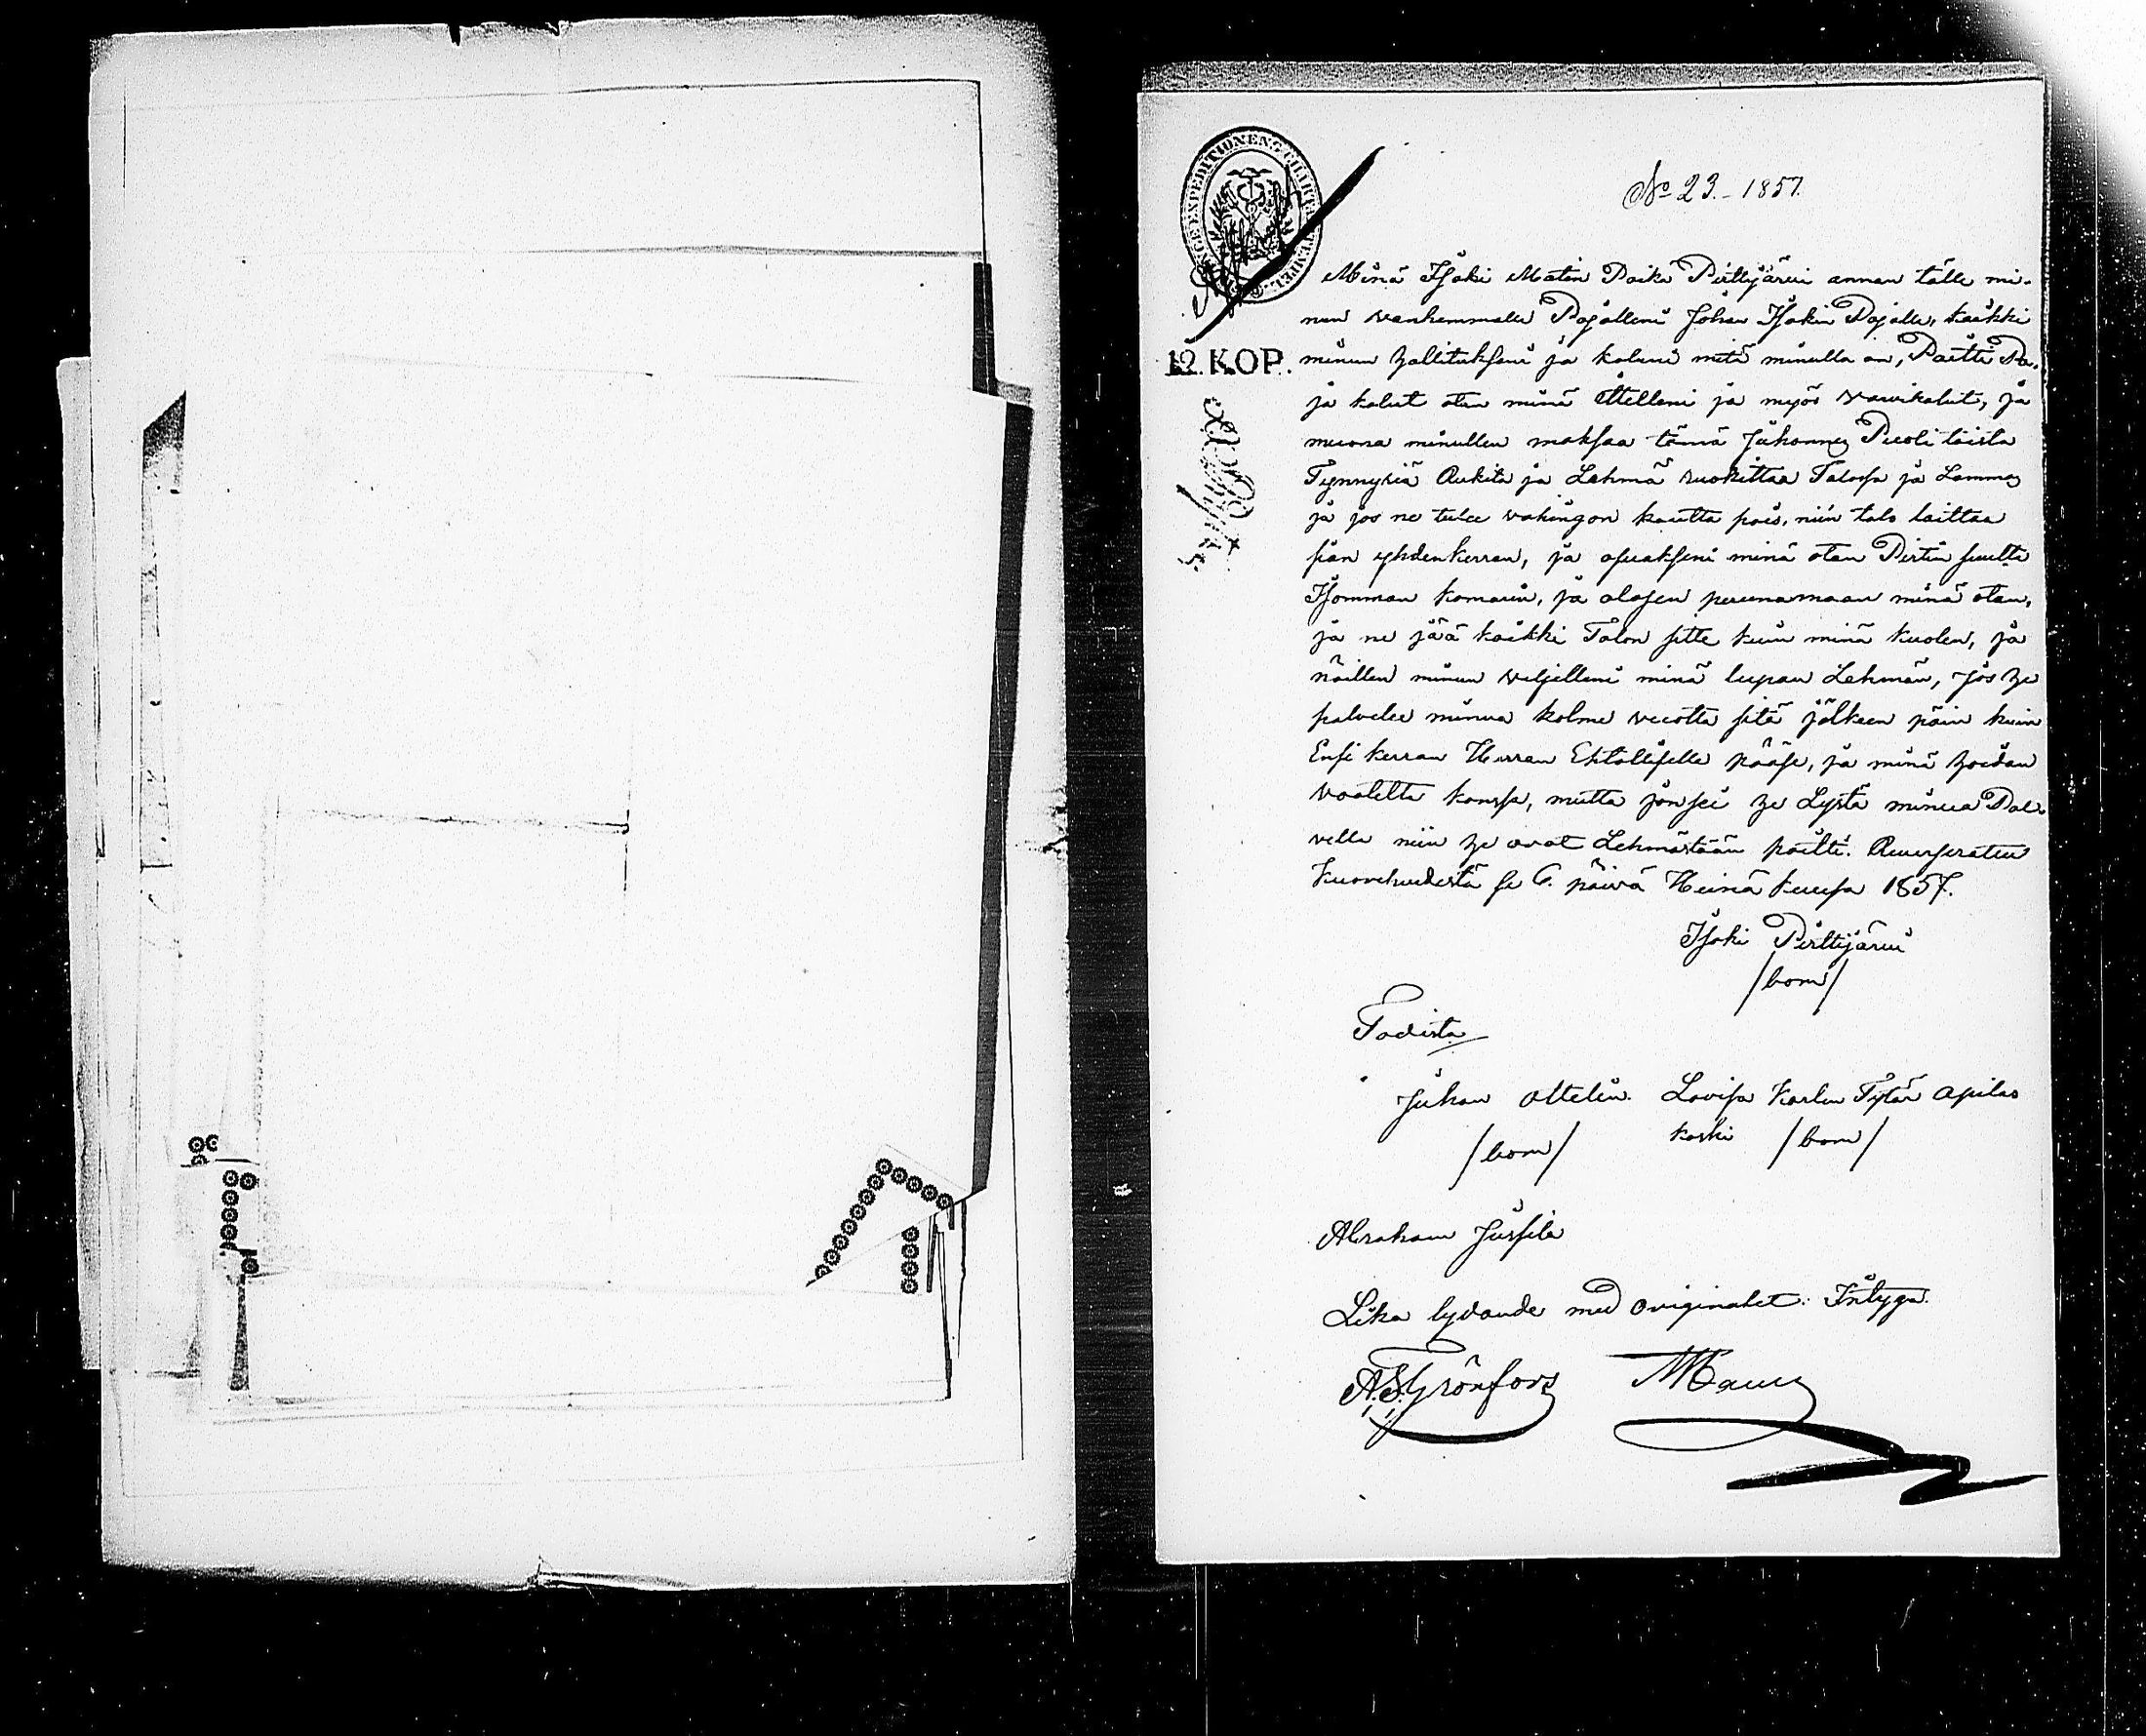 No 23.- 1857.
Minä Isaki Matin Poika Pirttijärvi annan tälle mi-
nun vanhemmalle Pojalleni Johan Isakin Pojalle, kaikki
12. KOP.
minun hallitukseni ja kaluni mitä minulla on, Paitti Pa-
ja kalut otan minä ittelleni ja myös
ja
muona minullen maksaa tämä Juhannes Puoli toista
Tynnyriä Rukita ja Lehmä ruokittaa Talossa ja Lammas
ja jos ne tulee vahingon kautta pois, niin talo laittaa
sian yhdenkerran, ja asuakseni minä otan Pirtin suulta
Isomman kamarin, ja alasen perunamaan minä otan,
ja ne jää kaikki Talon sitte kuin minä kuolen, ja
näillen minun veljilleni minä lupan Lehmän, jos he
palvelee minua kolme vuotta sitä jälkeen päin kuin
Ensi kerran Herran Ehtolliselle pääse, ja minä hoidan
vaatetta kanssa, mutta jonsei he Lystä minua Pal-
vella niin he ovat Lehmästään paitti.
se 6. päivä Heinä kuusa 1857.
Isaki Pirttijärvi
/bom/
Todista
Juhan Ottelin. Lovisa Karlin Tytär Apilas
/bom/
koski /bom/
Abraham Jussila
Lika lydande med originalet. Intyga.
A. S. Grönfors